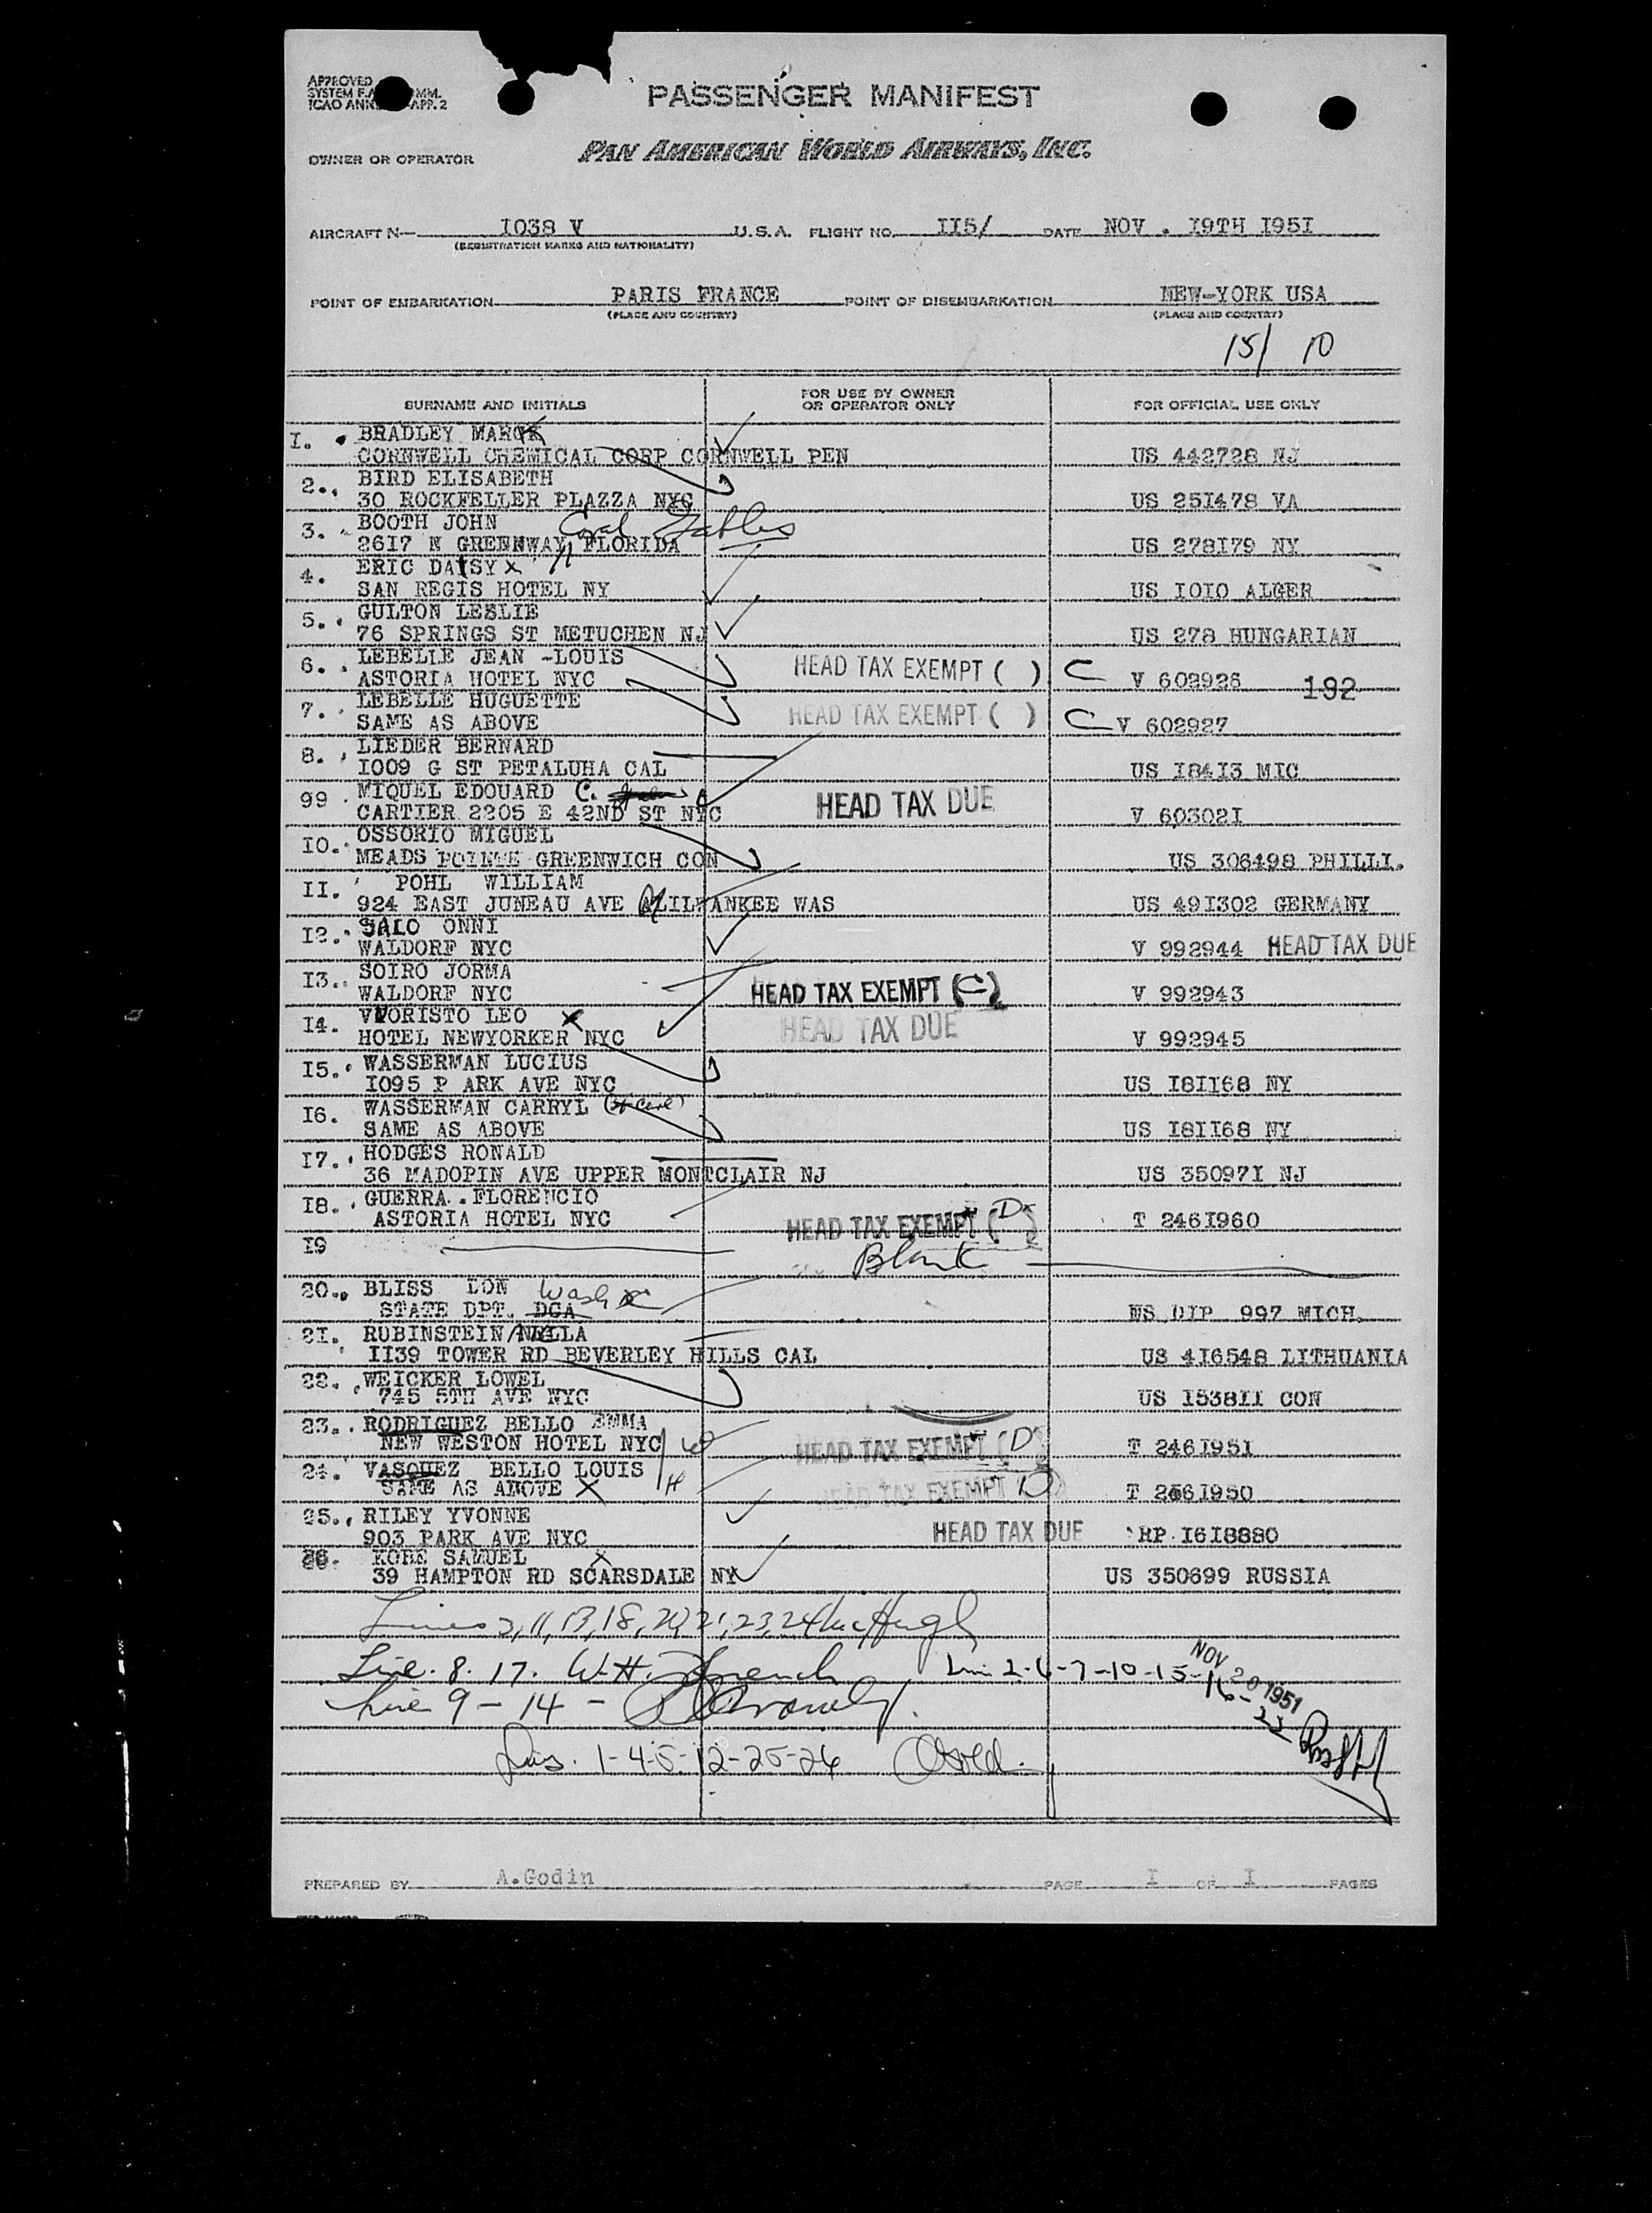 PASSENGER MANIFEST
PAN AMERICAN WORLD AIRWAYS, INC.
OWNER OR OPERATOR
AIRCRAFT N— I038 V U.S.A. FLIGHT NO. II5/ DATE NOV . I9TH I95I
(REGISTRATION MARKS AND NATIONALITY)
POINT OF EMBARKATION PARIS FRANCE POINT OF DISEMBARKATION NEW-YORK USA
(PLACE AND COUNTRY) (PLACE AND COUNTRY)
15/ 10
SURNAME AND INITIALS FOR USE BY OWNER OR OPERATOR ONLY FOR OFFICIAL USE ONLY
I. BRADLEY
CORNWELL CHEMICAL CORP CORNWELL PEN US 442728 NJ
2.. BIRD ELISABETH
30 ROCKFELLER PLAZZA NYC US 25I478 VA
3. BOOTH JOHN Coral Gables
2617 N GREENWAY FLORIDA US 278I79 NY
4. ERIC DAISY X
SAN REGIS HOTEL NY US IOIO ALGER
5.. GULTON LESLIE
76 SPRINGS ST METUCHEN NJ US 278 HUNGARIAN
6. . LEBELLE JEAN -LOUIS HEAD TAX EXEMPT ( ) C
ASTORIA HOTEL NYC V 602926 192
7. . LEBELLE HUGUETTE HEAD TAX EXEMPT ( ) C
SAME AS ABOVE V 602927
8. . LIEDER BERNARD
I009 G ST PETALUHA CAL US I84I3 MIC
99 . MIQUEL EDOUARD C. HEAD TAX DUE
CARTIER 2205 E 42ND ST NYC V 60302I
IO. OSSORIO MIGUEL
MEADS POINTE GREENWICH CON US 306498 PHILLI.
II. POHL WILLIAM
924 EAST JUNEAU AVE MILWANKEE WAS US 49I302 GERMANY
I2. SALO ONNI
WALDORF NYC V 992944 HEAD TAX DUE
I3.. SOIRO JORMA
WALDORF NYC HEAD TAX EXEMPT (C) V 992943
I4. VUORISTO LEO X HEAD TAX DUE
HOTEL NEWYORKER NYC V 992945
I5. WASSERMAN LUCIUS
I095 P ARK AVE NYC US I8II68 NY
I6. WASSERMAN CARRYL
SAME AS ABOVE US I8II68 NY
I7. HODGES RONALD
36 MADOPIN AVE UPPER MONTCLAIR NJ US 35097I NJ
I8. . GUERRA . FLORENCIO
ASTORIA HOTEL NYC HEAD TAX EXEMPT (D) T 246I960
I9 Blank
20.. BLISS LON Wash
STATE DPT. DCA US DIP 997 MICH.
2I. RUBINSTEIN
II39 TOWER RD BEVERLEY HILLS CAL US 4I6548 LITHUANIA
22. . WEICKER LOWEL
745 5TH AVE NYC US I538II CON
23.. RODRIGUEZ BELLO EMMA
NEW WESTON HOTEL NYC W HEAD TAX EXEMPT (D) T 246I95I
24. VASQUEZ BELLO LOUIS
SAME AS ABOVE X H HEAD TAX EXEMPT D T 2461950
25.. RILEY YVONNE HEAD TAX DUE
903 PARK AVE NYC RP I6I8880
26. KOBE SAMUEL X
39 HAMPTON RD SCARSDALE NY US 350699 RUSSIA
Lines 3, 11, 13, 18, 20, 21, 23, 24
Line. 8. 17. W.H. French Lin. 2-6-7-10-15-16-22
Line 9 - 14 -
NOV 20 1951
Lins. 1-4-5-12-25-26
PREPARED BY A.Godin PAGE I OF I PAGES